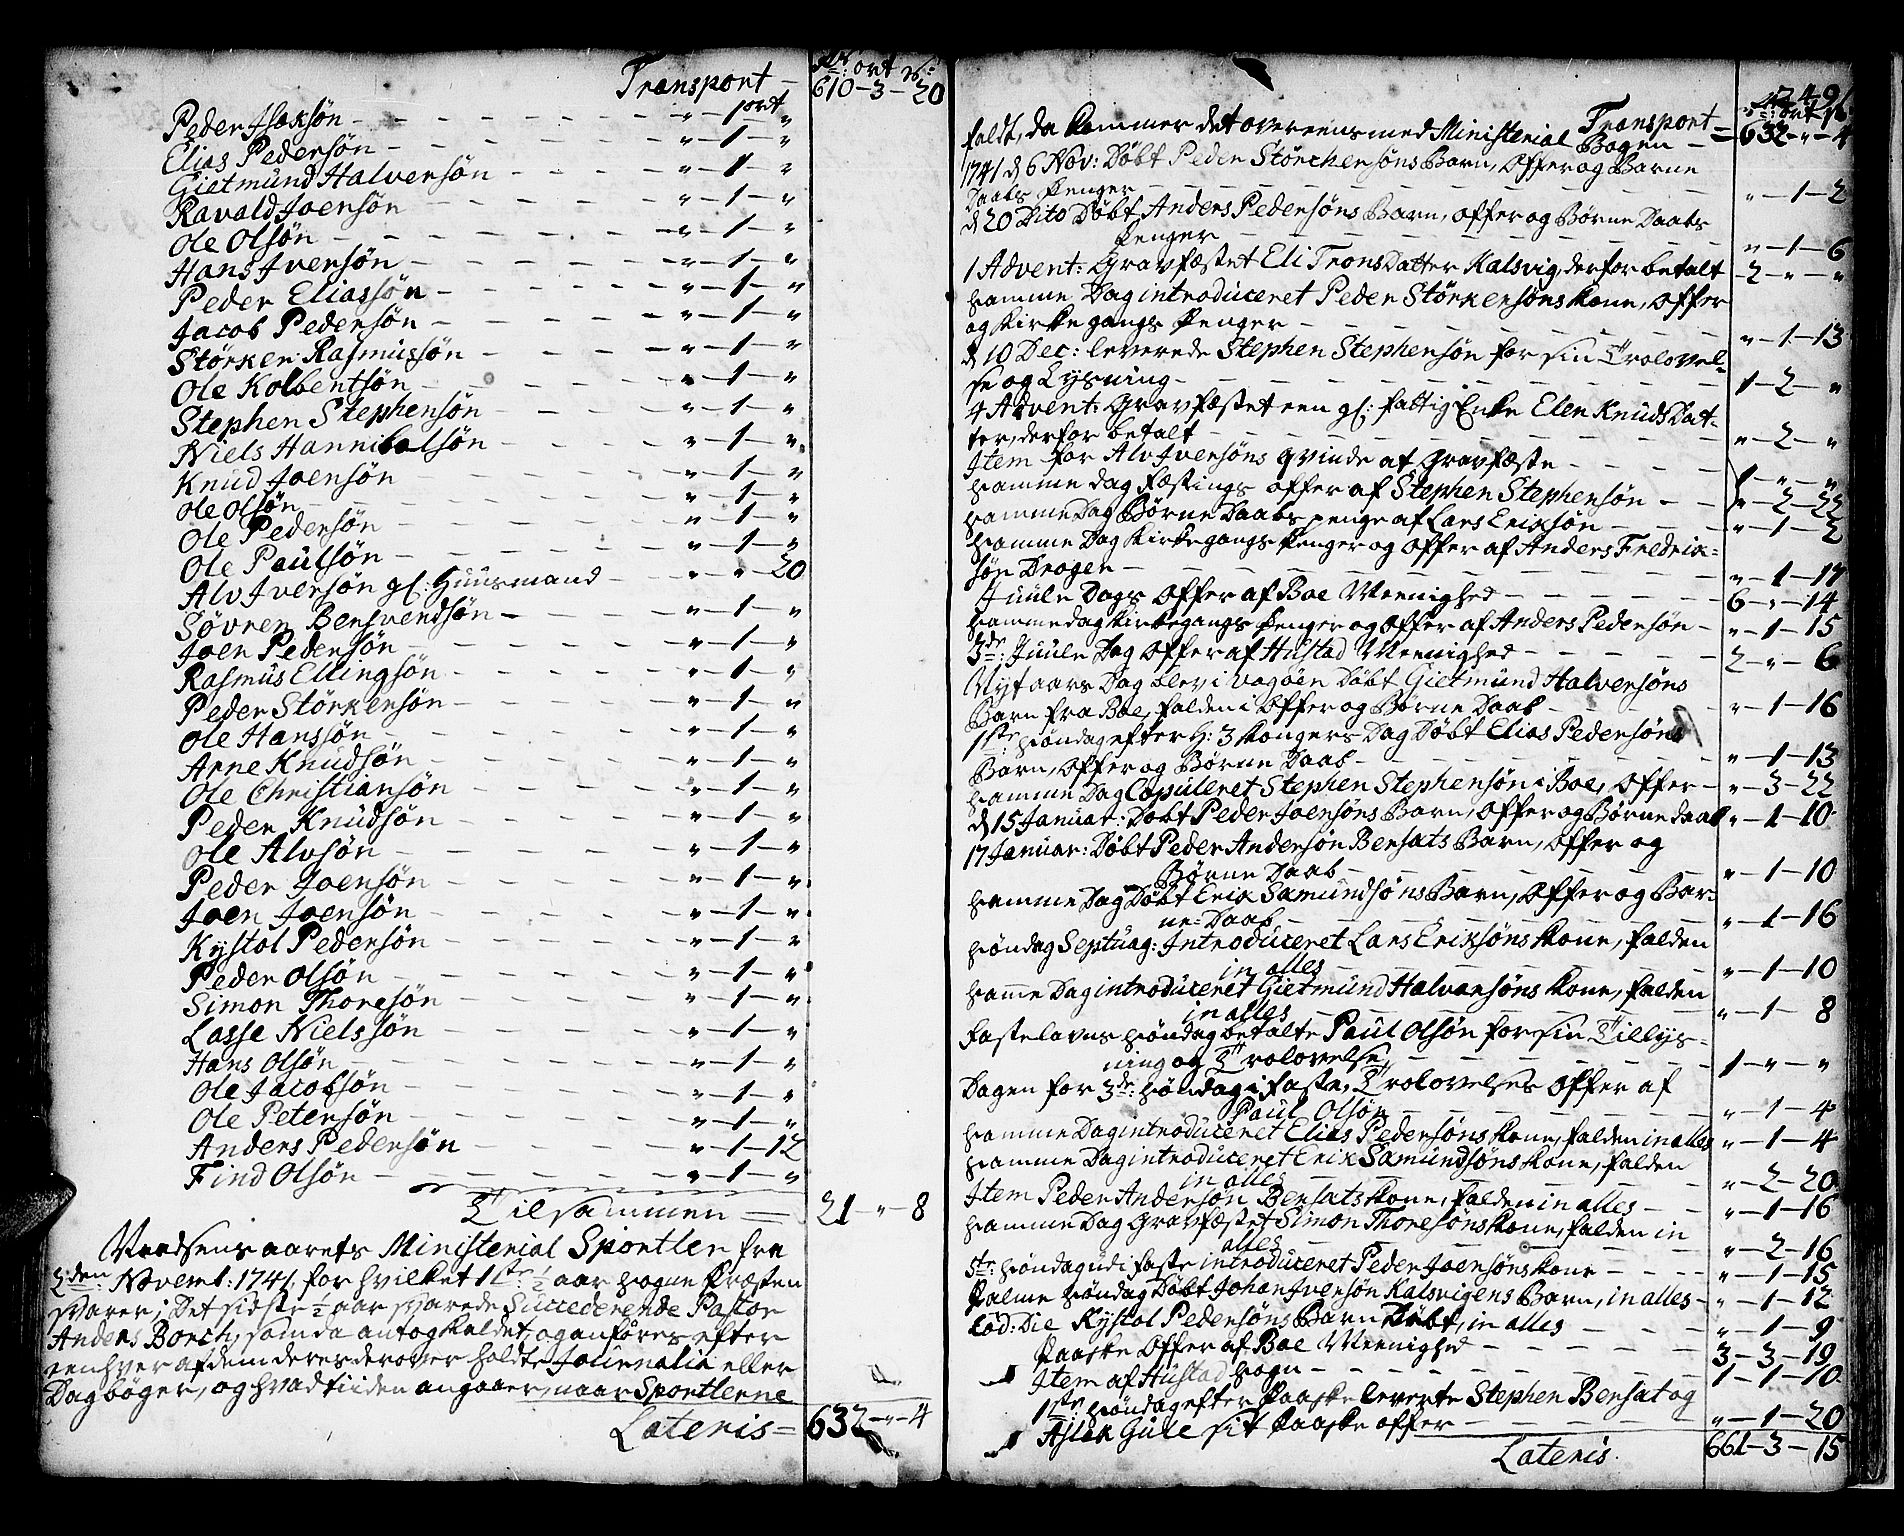 Rdr: ort ß:
Transport — 610-3-20
Peder Jsaksøn — „-1 ort „
Elias Pedersøn — „-1-„
Gietmund Halversøn — „-1-„
Ravald Joensøn — „-1-„
Ole Olsøn — „-1-„
Hans Iversøn — „-1-„
Peder Eliassøn — „-1-„
Jacob Pedersøn — „-1-„
Størker Rasmussøn — „-1-„
Ole Kolbentsøn — „-1-„
Stephen Stephensøn — „-1-„
Niels Hannibalsøn — „-1-„
Knud Joensøn — „-1-„
Ole Olsøn — „-1-„
Ole Pedersøn — „-1-„
Ole Paulsøn — „-1-„
Alv Iversøn gl: Huusmand — „-„-20
Søvren Bensvendsøn — „-1-„
Joen Pedersøn — „-1-„
Rasmus Ellingsøn — „-1-„
Peder Størkersøn — „-1-„
Ole Hanssøn — „-1-„
Arne Knudsøn — „-1-„
Ole Christiansøn — „-1-„
Peder Knudsøn — „-1-„
Ole Alvsøn — „-1-„
Peder Joensøn — „-1-„
Joen Joensøn — „-1-„
Kystol Pedersøn — „-1-„
Peder Olsøn — „-1-„
Simon Thoresøn — „-1-„
Lasse Nielssøn — „-1-„
Hans Olsøn — „-1-„
Ole Jacobsøn — „-1-„
Ole Petersøn — „-1-„
Anders Pedersøn — „-1-12
Find Olsøn — „-1-„
Tilsammen = 21-„-8
Naadsens aarets Ministerial Sportler fra
2den Novemb: 1741, for hvilket 1ste ½ aar Sogne Præsten
svarer; Det sidste ½ aar svarede Succederende Pastor
Anders Borch, som da antog Kaldet, og anføres efter
een hver af dem deres derover holdte Journalia eller
Dagbøger, og hvad tiiden angaaer, naar Sportlerne
Lateris = 632-„-4
249
Transport = 632-„-4
faldt, da kommer det overeens med Ministerial Bogen —
1741 d 6 Nov: Døbt Peder Størchersøns Barn, Offer og Børne
Daabs Penger — „-1-2
d 20 Dito Døbt Anders Pedersøns Barn, offer og Børne Daabs
Penger — „-1-6
1 Advent: Gravfæstet Eli TronsDatter Kalsvig, derfor betalt 2-„-„
Samme Dag introduceret Peder Størkersøns Kone, Offer
og Kirkegangs Penger — „-1-13
d 10 Dec: leverede Stephen Stephensøn for sin Trolovel-
se og Lysning — 1-2-„
4 Advent: Gravfæstet een gl: fattig Enke Elen KnudsDat-
ter, derfor betalt — „-2-„
Item for Alv Iversøns qvinde af Gravfæste — 1-„-„
Samme dag Fæstings offer af Stephen Stephensøn — „-2-22
Samme Dag Børne Daabs penge af Lars Eriksøn — „-1-2
Samme Dag Kirkegangs Penger og Offer af Anders Fredrik-
søn Dragen — „-1-17
Juule Dags Offer af Boe Meenighed — 6-„-14
Samme dag Kirkegangs Penger og Offer af Anders Pedersøn — „-1-15
3de: Juule Dag Offer af Hustad Meenighed — 2-„-6
Nytaars Dag blev i Vagøen Døbt Gietmund Halversøns
Barn fra Boe, falden i Offer og Børne Daab — „-1-16
1ste Søndag efter H: 3 Kongers Dag Døbt Elias Pedersøns
Barn, Offer og Børne Daab — „-1-13
Samme Dag Copuleret Stephen Stephensøn i Boe, Offer — „-3-22
d 15 Januar: Døbt Peder Joensøns Barn, Offer og Børne daab „-1-10
17 Januar: Døbt Peder Andersøn Bersats Barn, Offer og
Børne Daab — „-1-10
Samme Dag Døbt Erik Samundsøns Barn, Offer og Bør-
ne-Daab — „-1-16
Søndag Septuag: Introduceret Lars Eriksøns Kone, falden
in alles — „-1-10
Samme Dag introduceret Gietmund Halversøns Kone, falden
in alles — „-1-8
Fastelavns Søndag betalte Paul Olsøn for sin Tillys-
ning og Trolovelse — 1-„-„
Dagen for 3de: Søndag i faste, Trolovelses Offer af
Paul Olsøn — „-1-4
Samme Dag introduceret Elias Pedersøns Kone, falden in alles „-1-4
Samme Dag introduceret Erik Samundsøns Kone, falden
in alles — „-2-20
Item Peder Andersøn Bersats Kone, falden in alles — „-1-16
Samme Dag Gravfæstet Simon Thoresøns Kone, falden in
alles — „-2-16
5te: Søndag udi faste introduceret Peder Joensøns Kone — „-1-15
Palme Søndag Døbt Johan Iversøn Kalsvigens Barn, in alles — „-1-12
Eod: Die Kystol Pedersøns Barn Døbt, in alles — „-1-9
Paaske Offer af Boe Meenighed — 3-3-19
Item af Hustad Sogn — 1-1-10
1ste Søndag efter Paaske leverte Stephen Bersat og
Aslak Gule sit Paaske offer — „-1-20
Lateris. 661-3-15